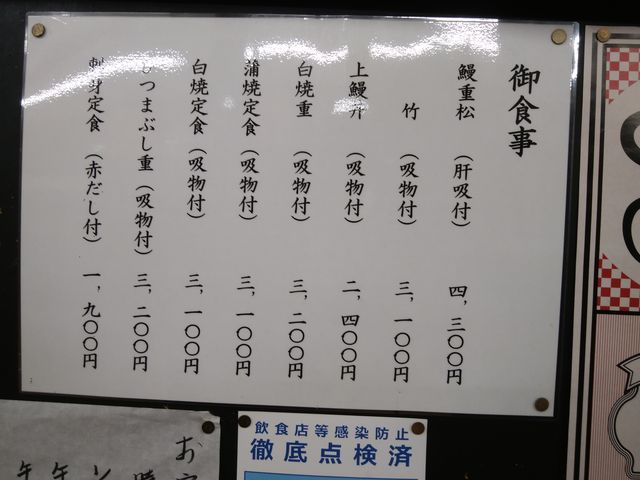 御食事
鰻重松 （肝吸付） 四，三〇〇円
竹 （吸物付） 三，一〇〇円
上鰻丼 （吸物付） 二，四〇〇円
白焼重 （吸物付） 三，二〇〇円
蒲焼定食 （吸物付） 三，一〇〇円
白焼定食 （吸物付） 三，一〇〇円
ひつまぶし重 （吸物付） 三，二〇〇円
刺身定食 （赤だし付） 一，九〇〇円
飲食店等感染防止
徹底点検済